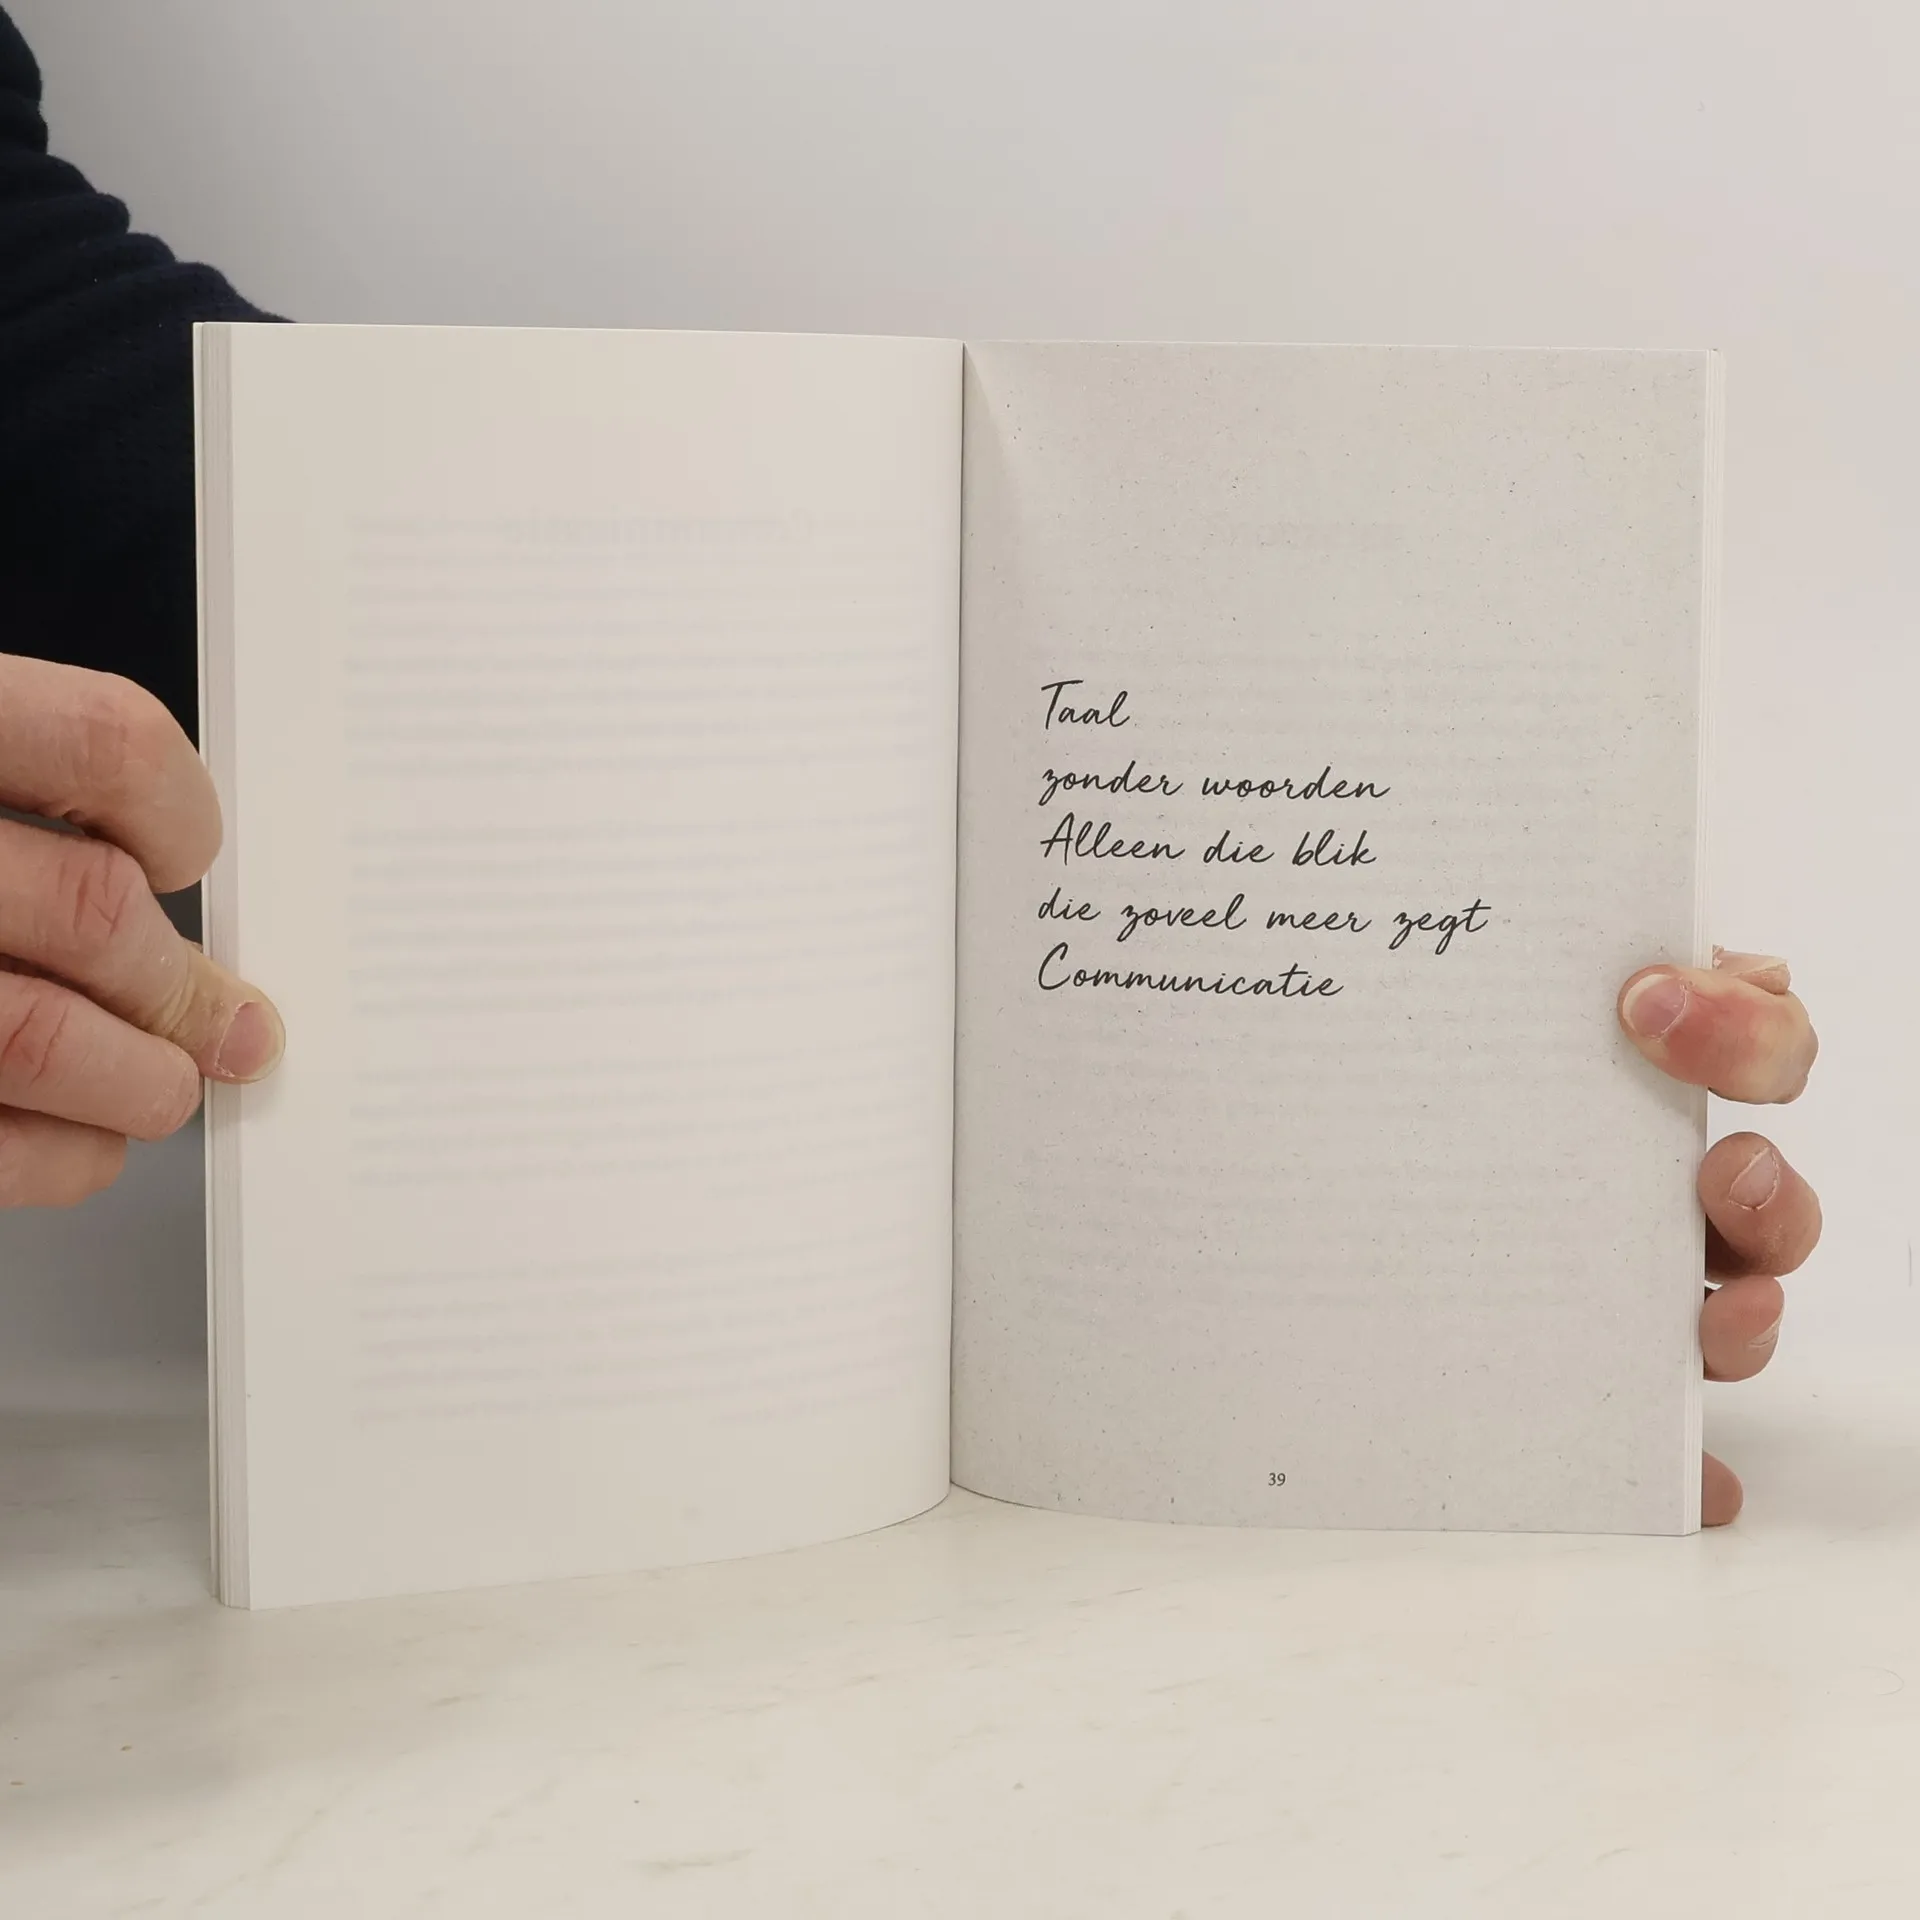 Taal
zonder woorden
Alleen die blik
die zoveel meer zegt
Communicatie
39